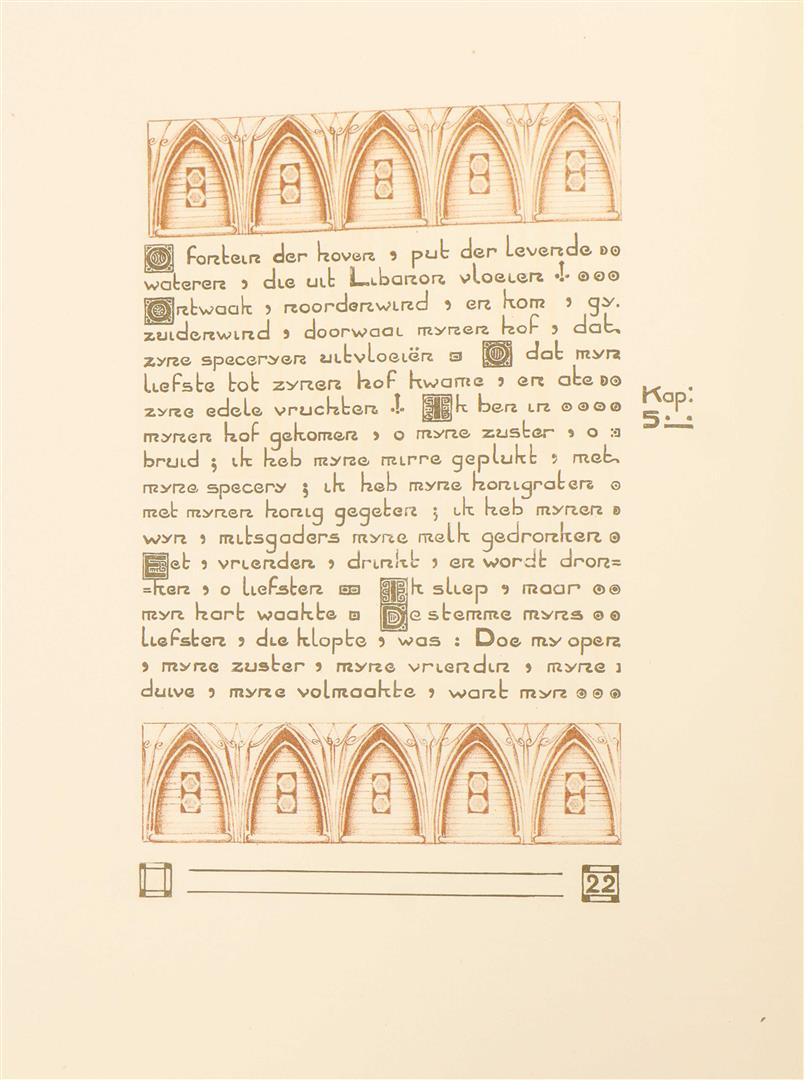 O fontein der hoven , put der levende
wateren , die uit Libanon vloeien !
Ontwaak , noordenwind , en kom , gy.
zuidenwind , doorwaai mynen hof , dat
zyne speceryen uitvloeiën O dat myn
liefste tot zynen hof kwame , en ate
zyne edele vruchten ! Ik ben in
mynen hof gekomen , o myne zuster , o :
bruid ; ik heb myne mirre geplukt , met
myne specery ; ik heb myne honigraten
met mynen honig gegeten ; ik heb mynen
wyn , mitsgaders myne melk gedronken
Eet , vrienden , drinkt , en wordt dron=
=ken , o liefsten Ik sliep , maar
myn hart waakte De stemme myns
liefsten , die klopte , was : Doe my open
, myne zuster , myne vriendin , myne :
duive , myne volmaakte , want myn
Kap:
5
22